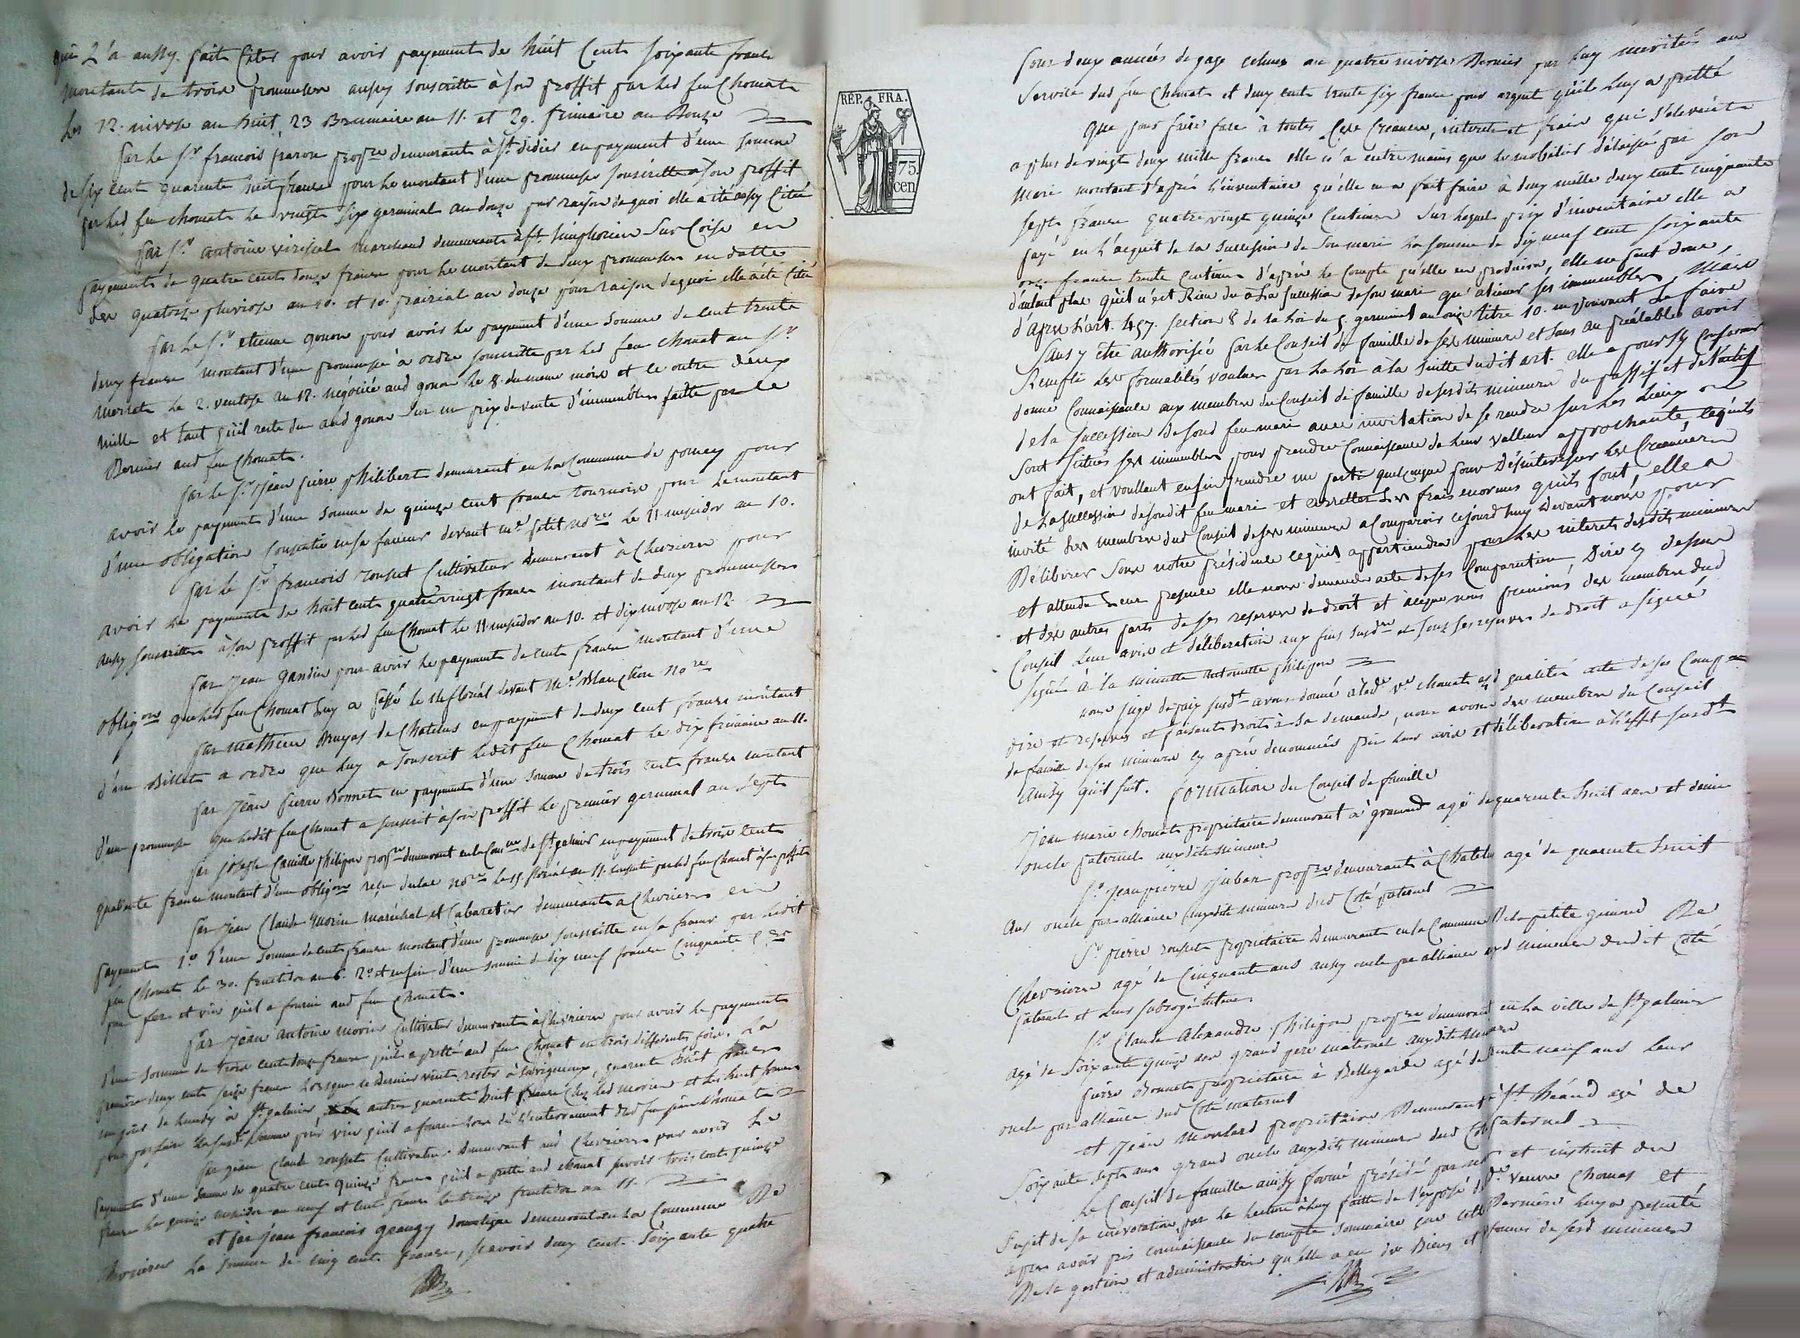 qui l'a aussy fait citer pour avoir payement de huit cents soixante francs
montants de trois promesses aussy souscritte à son proffit par led feu Chomat
les 12. nivose an huit 23 Brumaire an 11. et 29. frimaire an Douze
par le Sr. francois frarou propre demeurant à St. didier en payement d'une somme
de six cents quarente huit francs pour le montant d'une promesse souscritte a son proffit
par led feu chomat le vingt six germinal an douze par raison de quoi elle a été aussy citée
par Sr. antoine virissel marchand demeurant à St. simphorien sur Coise en
payements de quatre cents douze francs pour le montant de deux promesses en datte
des quatorze pluviose an 10. et 10. prairial an douze pour raison de quoi elle a été citée
par le Sr. etienne gonon pour avoir le payement d'une somme de cent trente
deux francs montant d'une promesse à ordre souscritte par led feu chomat au Sr.
merlat le 2. ventose an 12. négociée aud gonon le 8. du meme mois et le outre deux
mille et tant qu'il reste du aud gonon sur un prix de vente d'immeubles faitte par le
Dernier aud feu Chomat.
par le Sr. Jean pierre philibert demeurant en la Commune de pomey pour
avoir le payement d'une somme de quinze cent francs tournois pour le montant
d'une obligation consentie en sa faveur devant me. petit nore. le 11 messidor an 10.
par le Sr. francois rousset Cultivateur Demeurant à Chevrieres pour
avoir le payements de huit cents quatre vingt francs montant de deux promesses
aussy souscrittes à son proffit par led feu Chomat le 11 messidor an 10. et dix nivose an 12.
par Jean gardin pour avoir le payements de cent francs montant d'une
obligion que led feu Chomat luy a passé le 11 floréal devant Me. Blanchin nore
par mathieu Bruyas de Chatelus en payement de deux cent francs montant
d'un Billet a ordre que luy a souscrit ledit feu Chomat le dix frimaire an 11.
par Jean pierre Bonnet en payement d'une somme de trois cents francs montant
d'une promesse que ledit feu Chomat a souscrit à son proffit le premier germinal an sept
par Joseph Camille philipon propre demeurant en la Comne de St. galmier en payement de trois cents
quarente francs montant d'une obligion recu dulac nore le 15 floréal an 11. consentie par led feu Chomat à son proffit
par Jean Claude Morin maréchal et Cabaretier demeurant a Chevrieres en
payements 1o d'une somme de cents francs montant d'une promesse souscritte en sa faveur par ledit
feu Chomat le 30. fructidor an 6. 2o et enfin d'une somme de dix neuf francs cinquante c.
par fers et vin qu'il a fourni aud feu Chomat.
par Jean Antoine morin Cultivateur demeurant à Chevrieres pour avoir le payements
d'une somme de trois cent douze francs qu'il a pretté aud feu Chomat en trois differentes fois. La
premiere deux cents seize francs lorsque ce dernier vint rester à Savigneux, quarente huit francs
un jour de lundy à St. galmier autres quarente huit francs chez led morin et les huit francs
pour parfaire lad somme pour vin qu'il a fourni lors de l'enterrement dud feu jean Chomat
par Jean Claude rousset Cultivateur Demeurant aud Chevrieres par avoir le
payement d'une somme de quatre cents quinze francs qu'il a pretté aud Chomat savoir trois cents quinze
francs le quinze messidor an neuf et cent francs le treize fructidor an 11.
et par jean francois geangy domestique demeurant en la Commune De
Chevrieres la somme de cinq cents francs, scavoir deux cent soixante quatre
REP. FRA.
75
cen
pour deux années de gage echues au quatre nivose Dernier par luy merités au
service dud feu Chomat et deux cents trente six francs pour argent qu'il luy a pretté
Que pour faire face à toutes ces Creances, interets et frais qui s'elevent
a plus de vingt deux mille francs elle n'a entre mains que le mobilier délaissé par son
mari montant d'après l'inventaire qu'elle en a fait faire à deux mille deux cents cinquante
sept francs quatre vingt quinze Centimes sur lequel prix d'inventaire elle a
payé en l'acquit de la succession de son mari la somme de dix neuf cent soixante
onze francs trente Centimes d'après le Compte qu'elle en produira, elle ne peut donc,
d'autant plus qu'il n'est Rien du a la succession de son mari qu'aliener ses immeubles, Mais
d'après l'art. 457. section 8 de la loi du 5. germinal an onze titre 10. ne pouvant le faire
sans y être authorisée par le Conseil de famille de ses mineurs et sans au préalable avoir
Remplie les formalités voulues par la loi à la suitte dudit art. elle a pour s'y conformer
donné Connaissance aux membres du Conseil de famille desdits mineurs du passif et de l'actif
de la succession De son feu mari avec invitation de se rendre sur les lieux où
sont situés les immeubles pour prendre Connaissance de leur valleur approchante ce qu'ils
ont fait, et voullant enfin prendre un parti quelconque pour Désintéresser les Creanciers
de la succession desondit feu mari et arretter les frais enormes qu'ils font, elle a
invité les membres dud Conseil de ses mineurs a Comparoir cejourd'huy devant nous pour
Déliberer sous notre présidence ce qu'il appartiendra pour les interets desdits mineurs
et attendu leur presence elle nous demande acte de ses Comparution, Dire cy dessus
et des autres parts de ses reserves de droit et à ce que nous prenions des membres dud
Conseil leur avis et déliberation aux fins susdes et sous ses reserves de droit a signé
signé à la minutte antoinette philipon
nous Juge de paix susdt avons donné à lade ve chomat esd qualités acte de ses Compon
dire et reserves et faisants droits à sa demande, nous avons des membres du Conseil
de famille de ses mineurs cy après denommés pris leur avis et déliberation à l'effet susdt
ainsy qu'il suit. formation du Conseil de famille
Jean marie Chomat propriétaire demeurant à grammond agé de quarente huit ans et demi
oncle paternel auxdits mineurs
Sr. Jean pierre Juban propre demeurant à Chatelus agé de quarente huit
ans oncle par alliance auxdits mineurs dud Coté paternel
Sr. pierre rousset propriétaire Demeurant en la Commune De la petite gimond De
Chevrieres agé de Cinquante ans aussy oncle par alliance esd mineurs dudit Coté
paternel et leur subrogé tuteur
Sr. Claude Alexandre philipon propre demeurant en la ville de St. galmier
agé de soixante quinze ans grand pere maternel auxdits mineurs
pierre Bonnet propriétaire à Bellegarde agé de trente neuf ans leur
oncle par alliance dud Coté maternel
et Jean Moulard propriétaire Demeurant à St. héand agé de
soixante sept ans grand oncle auxdits mineurs dud Coté paternel
le Conseil de famille ainsy formé présidé par nous et instruit du
sujet de sa convocation par la lecture à luy faitte de l'exposé de lade veuve Chomat et
après avoir pris connaissance du compte sommaire que cette Derniere luy a présenté
De la gestion et administration qu'elle a eu des Biens et revenus de sesd mineurs